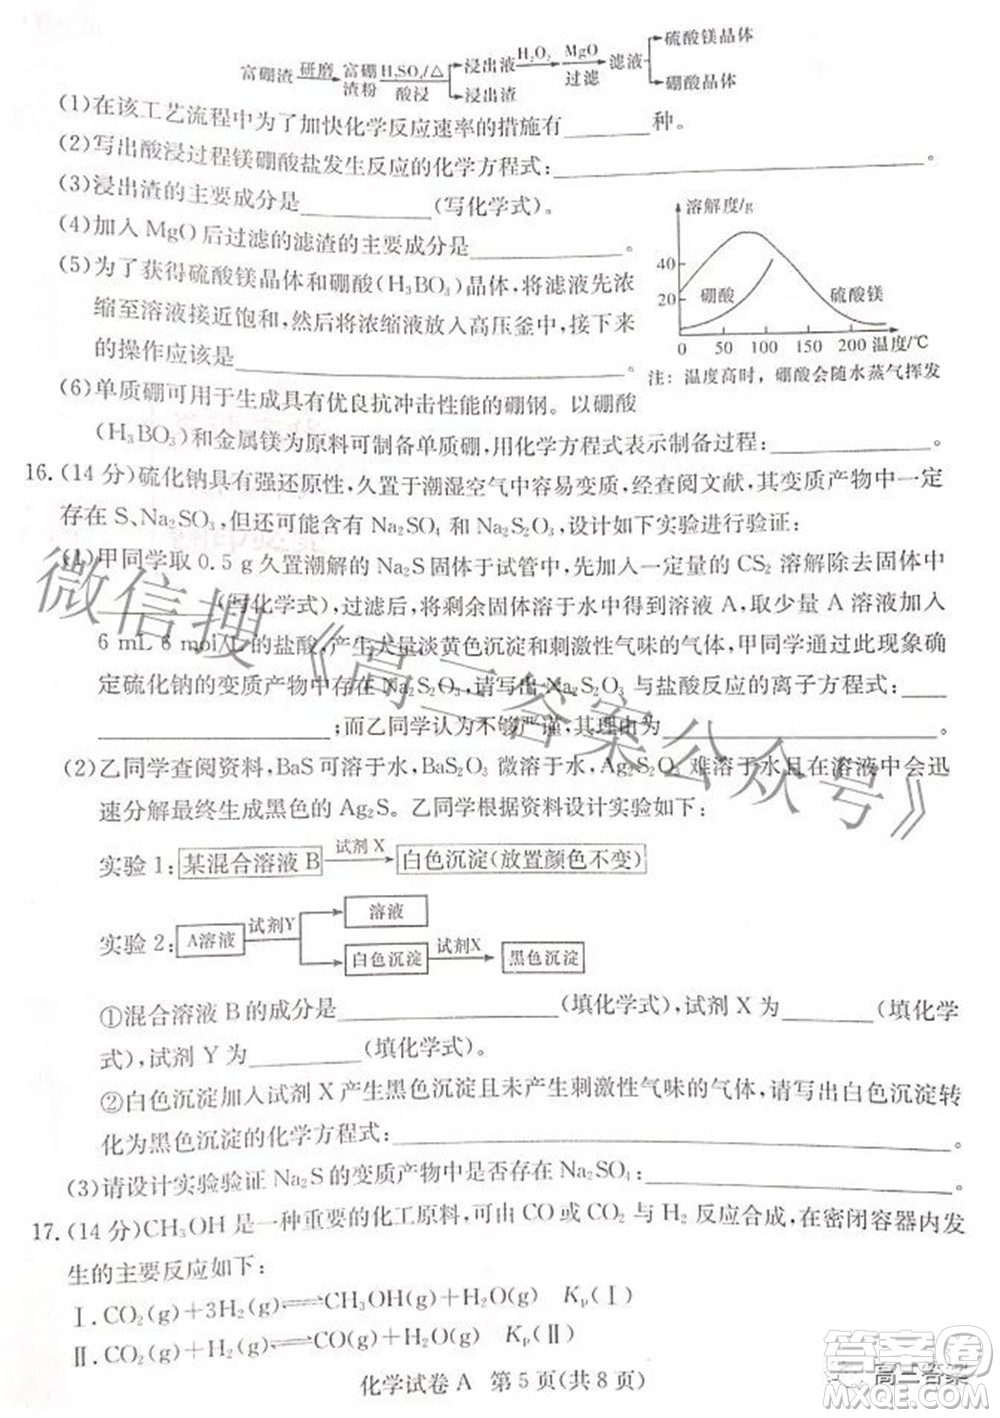 富硼渣 研磨 富硼渣粉 H₂SO₄/△ 酸浸 浸出液 H₂O₂ MgO 过滤 滤液 硫酸镁晶体
浸出渣 硼酸晶体
(1)在该工艺流程中为了加快化学反应速率的措施有________种。
(2)写出酸浸过程镁硼酸盐发生反应的化学方程式:________。
(3)浸出渣的主要成分是________(写化学式)。
(4)加入 MgO 后过滤的滤渣的主要成分是________。
(5)为了获得硫酸镁晶体和硼酸(H₃BO₃)晶体,将滤液先浓
缩至溶液接近饱和,然后将浓缩液放入高压釜中,获得晶体
的操作应该是________。
溶解度/g
40
20
硼酸 硫酸镁
0 50 100 150 200 温度/℃
注:温度高时,硼酸会随水蒸气挥发
(6)单质硼可用于生成具有优良抗冲击性能的硼钢。以硼酸
(H₃BO₃)和金属镁为原料可制备单质硼,用化学方程式表示制备过程:________。
16.(14分)硫化钠具有强还原性,久置于潮湿空气中容易变质,经查阅文献,其变质产物中一定
存在 S、Na₂SO₃,但还可能含有 Na₂SO₄ 和 Na₂S₂O₃,设计如下实验进行验证:
(1)甲同学取 0.5 g 久置潮解的 Na₂S 固体于试管中,先加入一定量的 CS₂ 溶解除去固体中
________(写化学式),过滤后,将剩余固体溶于水中得到溶液 A,取少量 A 溶液,加入
6 mL 6 mol/L 的盐酸,产生大量淡黄色沉淀和刺激性气味的气体,甲同学以此现象确
定硫化钠的变质产物中存在 Na₂S₂O₃,请写出 Na₂S₂O₃ 与盐酸反应的离子方程式:____
________;而乙同学认为不够严谨,其理由为________。
(2)乙同学查阅资料,BaS可溶于水,BaS₂O₃ 微溶于水,Ag₂S₂O₃ 难溶于水且在溶液中会迅
速分解最终生成黑色的 Ag₂S。乙同学根据资料设计实验如下:
实验1: 某混合溶液 B 试剂 X 白色沉淀(放置颜色不变)
实验2: A溶液 试剂Y 溶液
白色沉淀 试剂X 黑色沉淀
①混合溶液 B 的成分是________(填化学式),试剂 X 为________(填化学
式),试剂 Y 为________(填化学式)。
②白色沉淀加入试剂 X 产生黑色沉淀且未产生刺激性气味的气体,请写出白色沉淀转
化为黑色沉淀的化学方程式:________。
(3)请设计实验验证 Na₂S 的变质产物中是否存在 Na₂SO₄:________。
17.(14分)CH₃OH 是一种重要的化工原料,可由 CO 或 CO₂ 与 H₂ 反应合成,在密闭容器内发
生的主要反应如下:
Ⅰ.CO₂(g)+3H₂(g)⇌CH₃OH(g)+H₂O(g) Kₚ(Ⅰ)
Ⅱ.CO₂(g)+H₂(g)⇌CO(g)+H₂O(g) Kₚ(Ⅱ)
化学试卷 A 第 5 页(共 8 页)
微信搜《高三答案公众号》
答案圈
高三答案
MXQE.COM